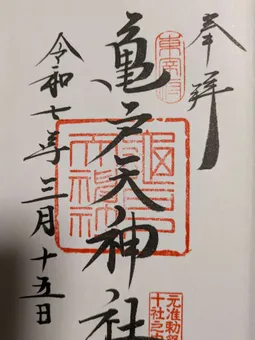 奉拝
東宰府
元准勅祭
十社之内
亀戸天神社
令和七年三月十五日